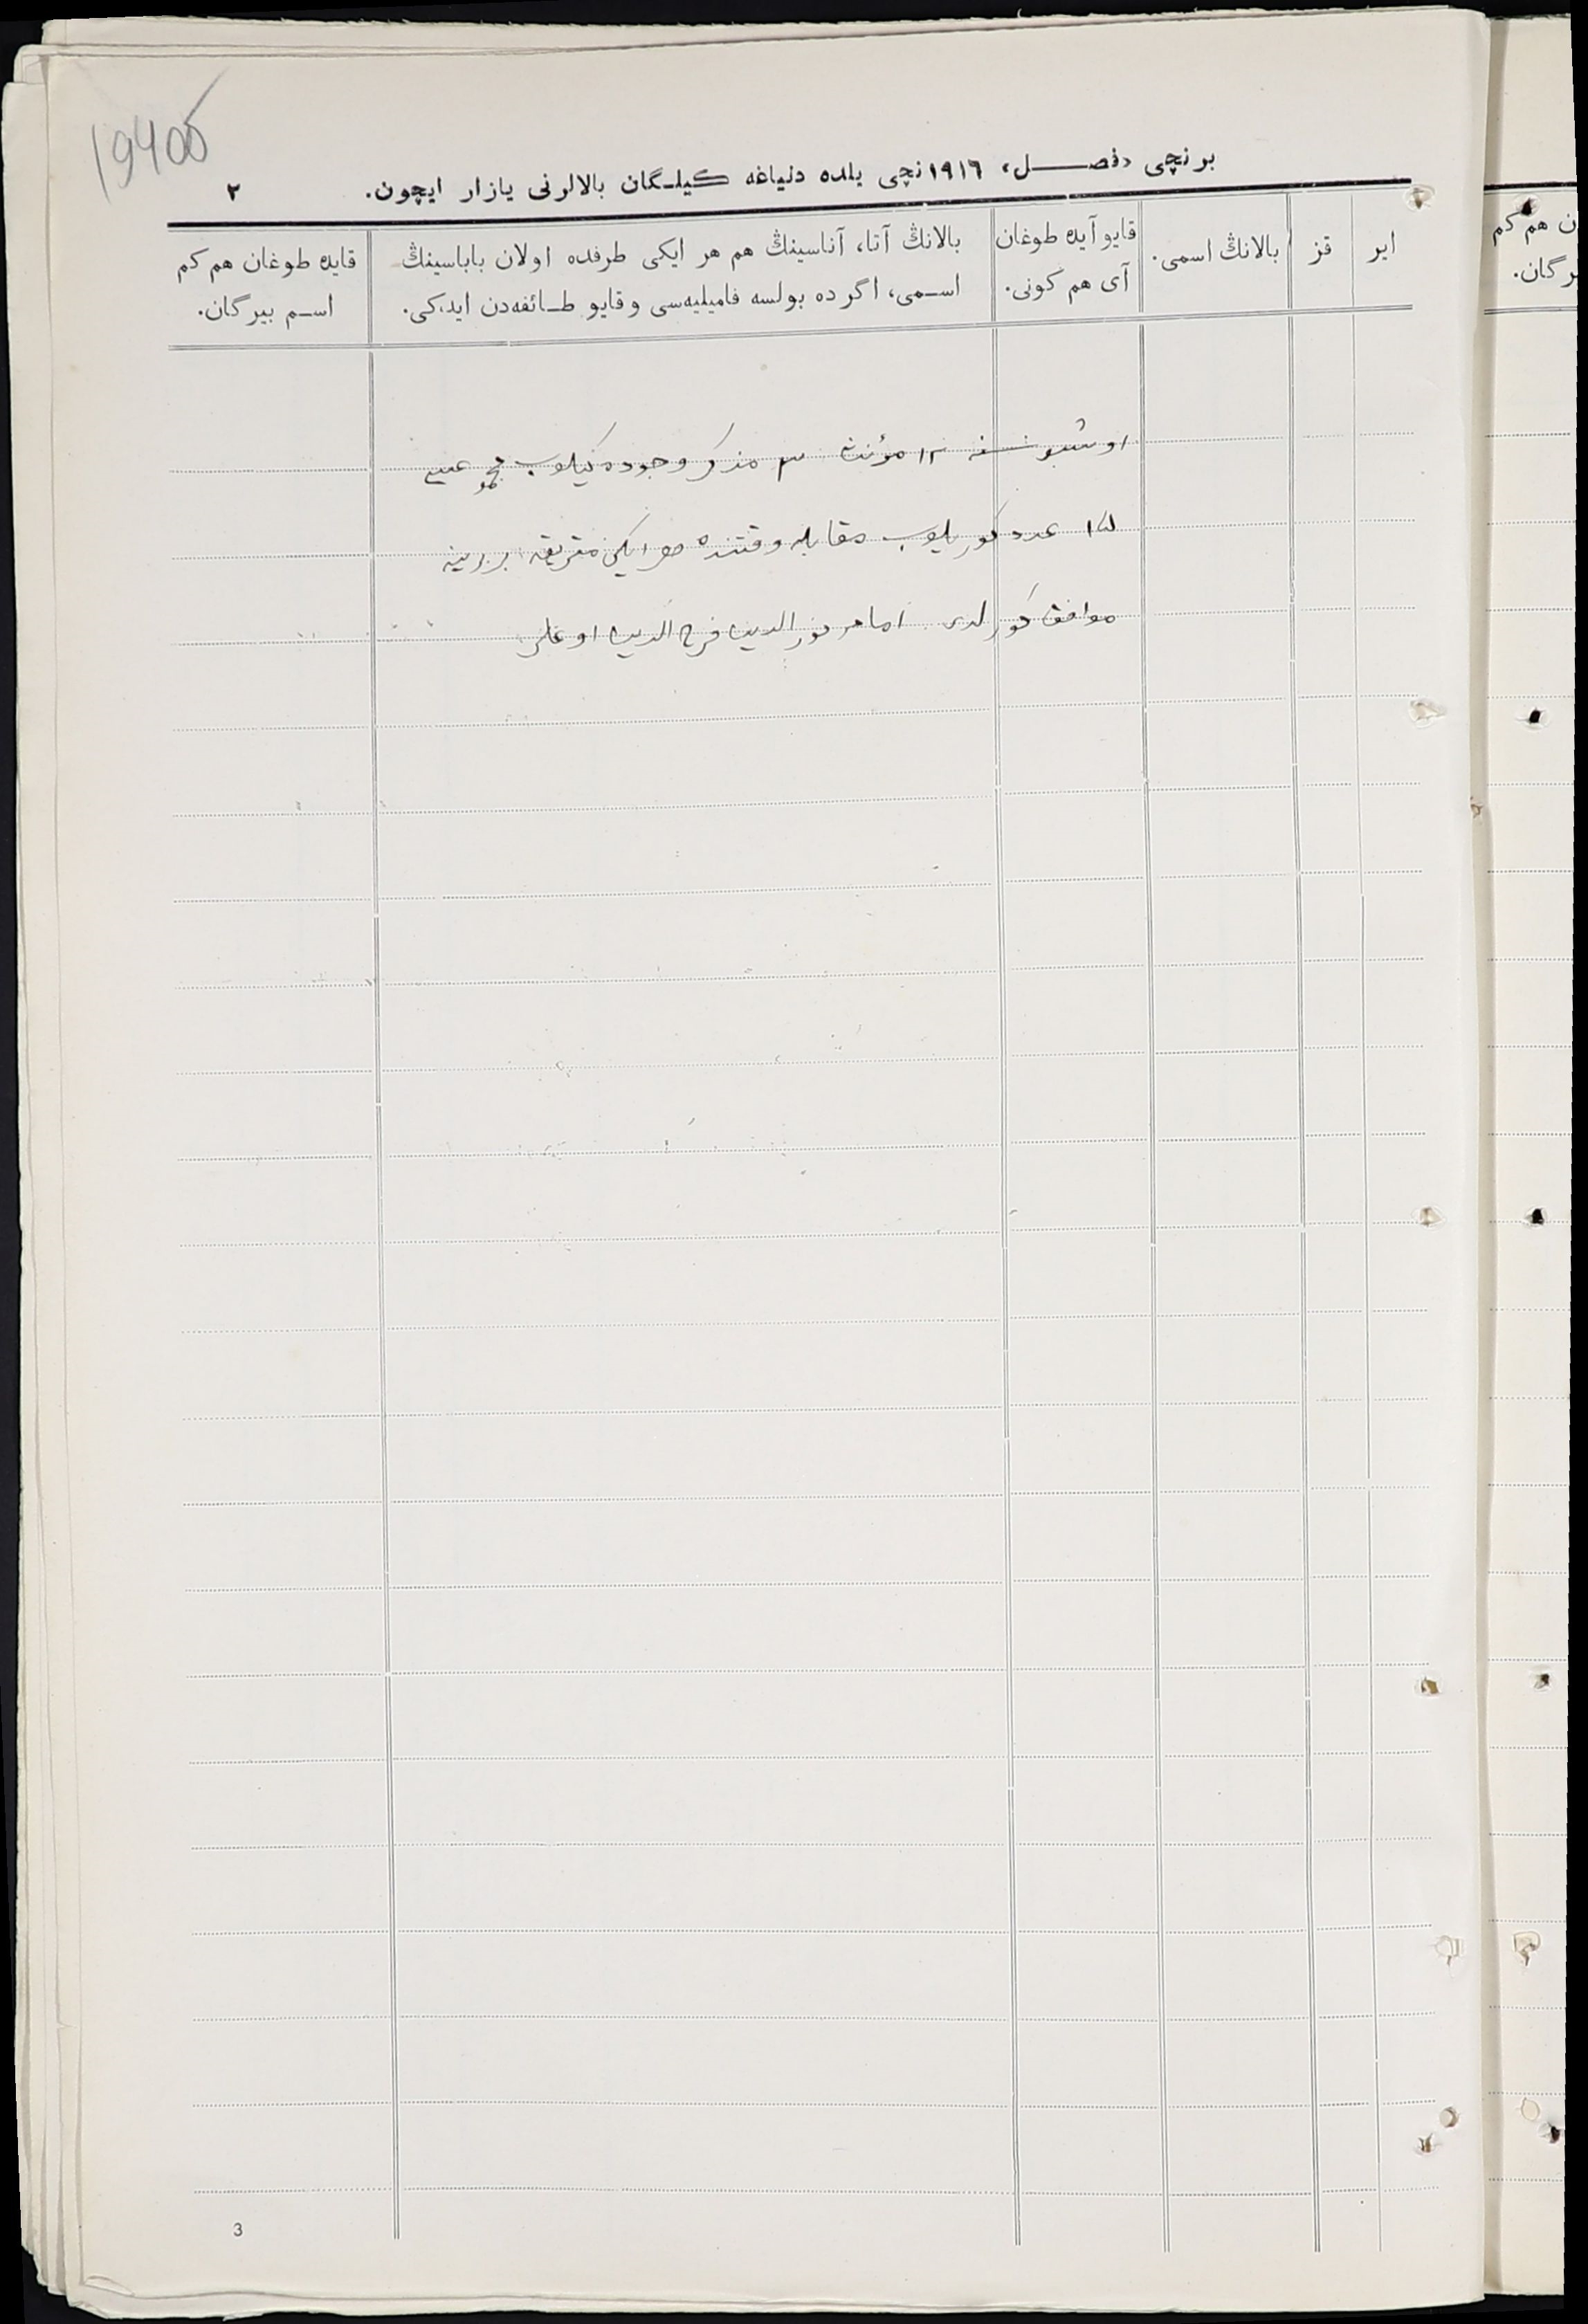 19400
برنچی «فصـــــل» ١٩١٦نچی یلده دنیاغه کیلـگان بالالرنی یازار ایچون.
٢
ایر
قز
بالانڭ اسمی.
قایو آیده طوغان
آی هم کونی.
بالانڭ آتا، آناسینڭ هم هر ایکی طرفده اولان باباسینڭ
اسـمی، اگر ده بولسه فامیلیه‌سی و قایو طـائفه‌دن ایدکی.
قایده طوغان هم کم
اسـم بیرگان.
ن هم کم
رگان.
اوشبو سنه ١٢ مؤنث ٣ مذکر وجوده کیلوب مجموعسی
١٥ عدد کوریلوب مقابله وقتنده هر ایکی متریقه بربرینه
موافق کورلدی. امام نورالدین فرح الدین اوغلی
3